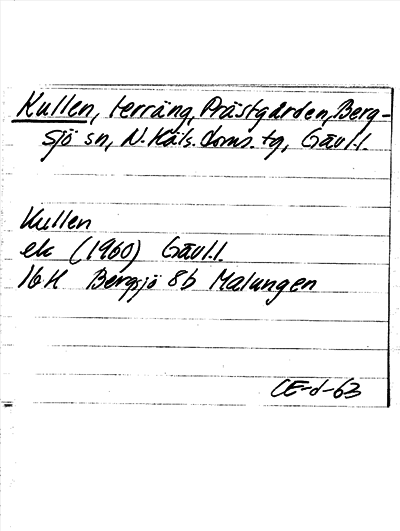 Kullen, terräng, Prästgården, Berg-
sjö sn, N. Häls. doms. tg, Gävl.l.
Kullen
ek (1960) Gävl.l.
16H Bergsjö 8b Malungen
CE-d-63